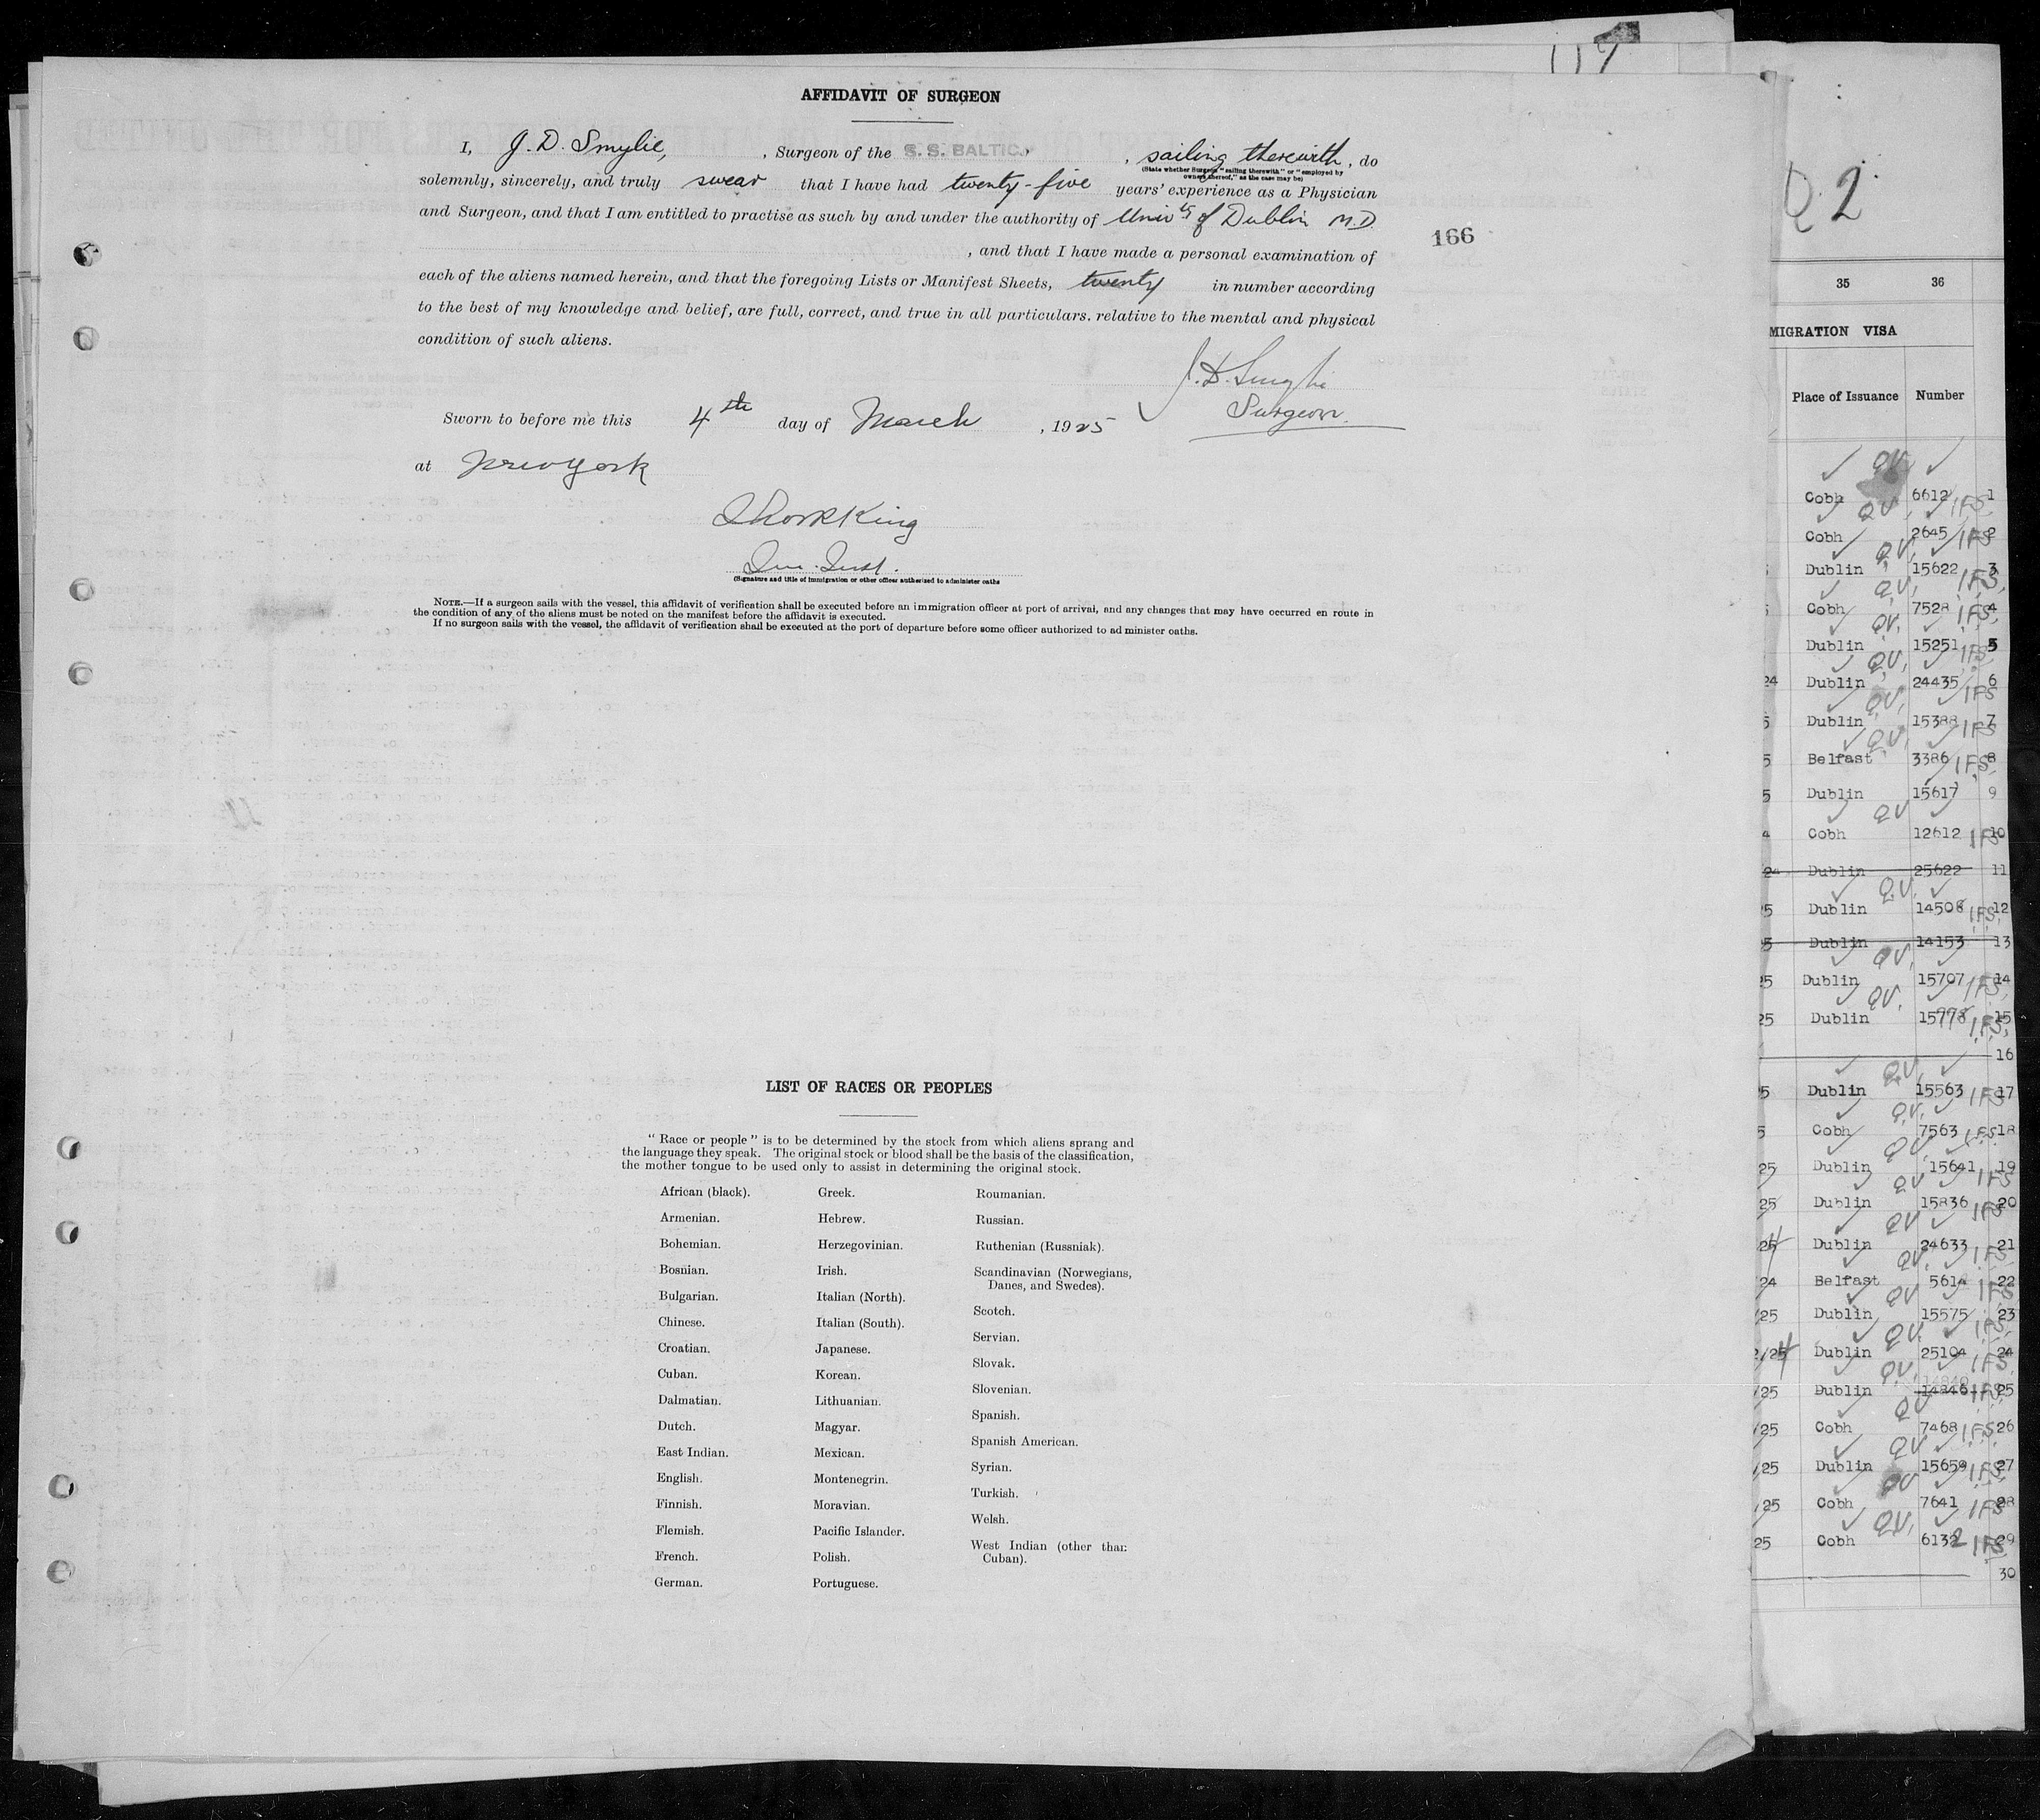 AFFIDAVIT OF SURGEON
I, J. D. Smylie, , Surgeon of the S. S. BALTIC. , sailing therewith, do
(State whether Surgeon "sailing therewith" or "employed by
owners thereof," as the case may be)
solemnly, sincerely, and truly swear that I have had twenty-five years' experience as a Physician
and Surgeon, and that I am entitled to practise as such by and under the authority of Univty of Dublin M.D.
, and that I have made a personal examination of
166
each of the aliens named herein, and that the foregoing Lists or Manifest Sheets, twenty in number according
to the best of my knowledge and belief, are full, correct, and true in all particulars. relative to the mental and physical
condition of such aliens.
J. D. Smylie
Surgeon.
Sworn to before me this 4th day of March , 1925
at New York
King
(Signature and title of immigration or other officer authorized to administer oaths
NOTE.—If a surgeon sails with the vessel, this affidavit of verification shall be executed before an immigration officer at port of arrival, and any changes that may have occurred en route in
the condition of any of the aliens must be noted on the manifest before the affidavit is executed.
If no surgeon sails with the vessel, the affidavit of verification shall be executed at the port of departure before some officer authorized to administer oaths.
LIST OF RACES OR PEOPLES
"Race or people" is to be determined by the stock from which aliens sprang and
the language they speak. The original stock or blood shall be the basis of the classification,
the mother tongue to be used only to assist in determining the original stock.
African (black).
Armenian.
Bohemian.
Bosnian.
Bulgarian.
Chinese.
Croatian.
Cuban.
Dalmatian.
Dutch.
East Indian.
English.
Finnish.
Flemish.
French.
German.
Greek.
Hebrew.
Herzegovinian.
Irish.
Italian (North).
Italian (South).
Japanese.
Korean.
Lithuanian.
Magyar.
Mexican.
Montenegrin.
Moravian.
Pacific Islander.
Polish.
Portuguese.
Roumanian.
Russian.
Ruthenian (Russniak).
Scandinavian (Norwegians,
Danes, and Swedes).
Scotch.
Servian.
Slovak.
Slovenian.
Spanish.
Spanish American.
Syrian.
Turkish.
Welsh.
West Indian (other than
Cuban).
2
35 36
MIGRATION VISA
Place of Issuance Number
Cobh 6612 1
Cobh 2645 IFS 2
Dublin 15622 3
Cobh 7528 IFS 4
Dublin 15251 5
24 Dublin 24435 6
5 Dublin 15388 7
5 Belfast 3386 IFS 8
5 Dublin 15617 9
4 Cobh 12612 IFS 10
24 Dublin 25622 11
25 Dublin 14508 IFS 12
5 Dublin 14153 13
25 Dublin 15707 IFS 14
25 Dublin 15778 IFS 15
16
5 Dublin 15563 IFS 17
5 Cobh 7563 IFS 18
25 Dublin 15641 19
25 Dublin 15836 IFS 20
Dublin 24633 21
24 Belfast 5614 22
/25 Dublin 15575 23
Dublin 25104 24
/25 Dublin 14846 IFS 25
/25 Cobh 7468 IFS 26
/25 Dublin 15659 IFS 27
/25 Cobh 7641 IFS 28
25 Cobh 6132 IFS 29
30